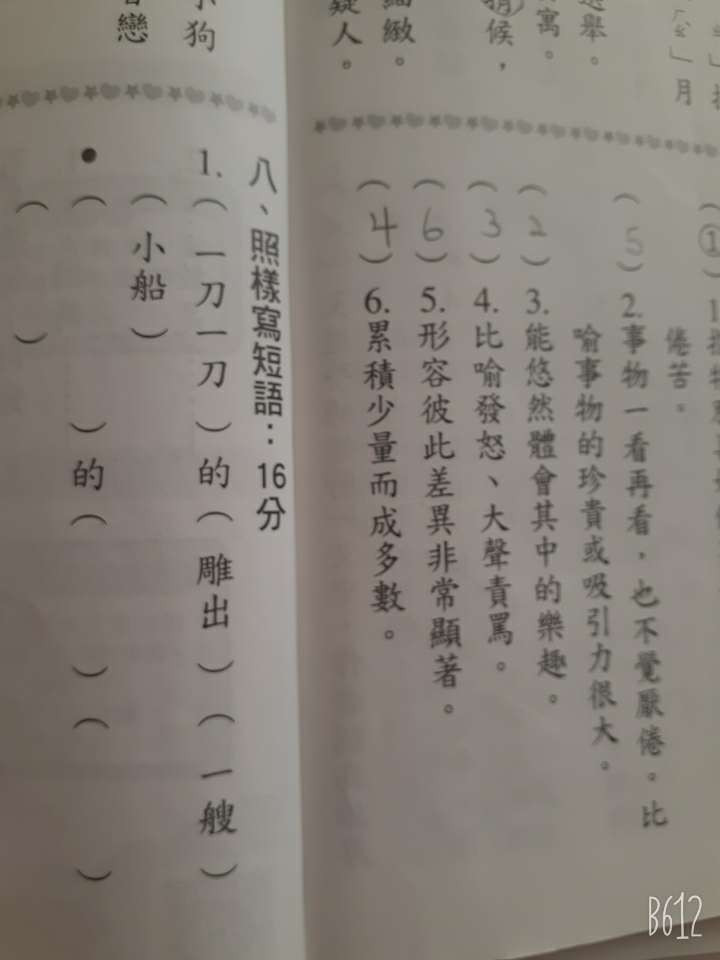 選舉。
寓。
候，
細緻。
疑人。
小狗
戀
」月
(①)1.
倦苦。
(5)2.事物一看再看，也不覺厭倦。比
喻事物的珍貴或吸引力很大。
(2)3.能悠然體會其中的樂趣。
(3)4.比喻發怒、大聲責罵。
(6)5.形容彼此差異非常顯著。
(4)6.累積少量而成多數。
八、照樣寫短語：16分
1.(一刀一刀)的(雕出)(一艘)
(小船)
●( )的( )( )
( )
B612